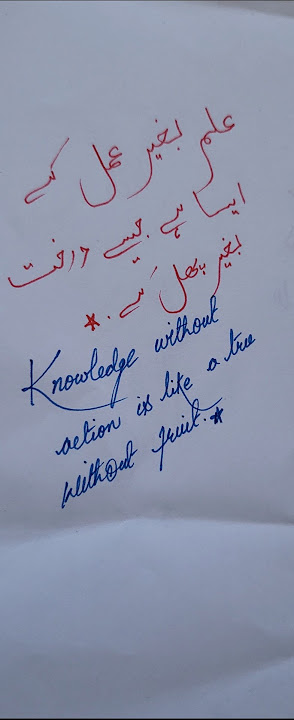 علم بغیر عمل کے
ایسا ہے جیسے درخت
بغیر پھل کے . *
Knowledge without
action is like a tree
without fruit. *